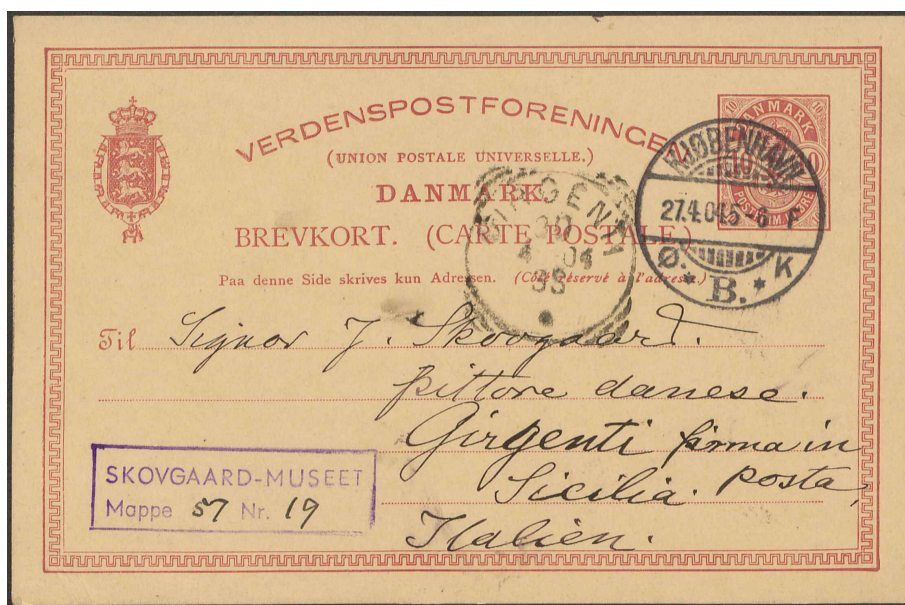 VERDENSPOSTFORENINGEN
(UNION POSTALE UNIVERSELLE.)
DANMARK
BREVKORT. (CARTE POSTALE.)
Paa denne Side skrives kun Adressen. (Côté réservé à l'adresse.)
DANMARK
10 10
POSTFRIM. ØRE
KJØBENHAVN
27.4.04 5-6 F
Ø. K
* B. *
GIRGENTI
30
4 04
Til Signor J. Skovgaard.
pittore danese.
Girgenti firma in
Sicilia. posta
Italien.
SKOVGAARD-MUSEET
Mappe 57 Nr. 19